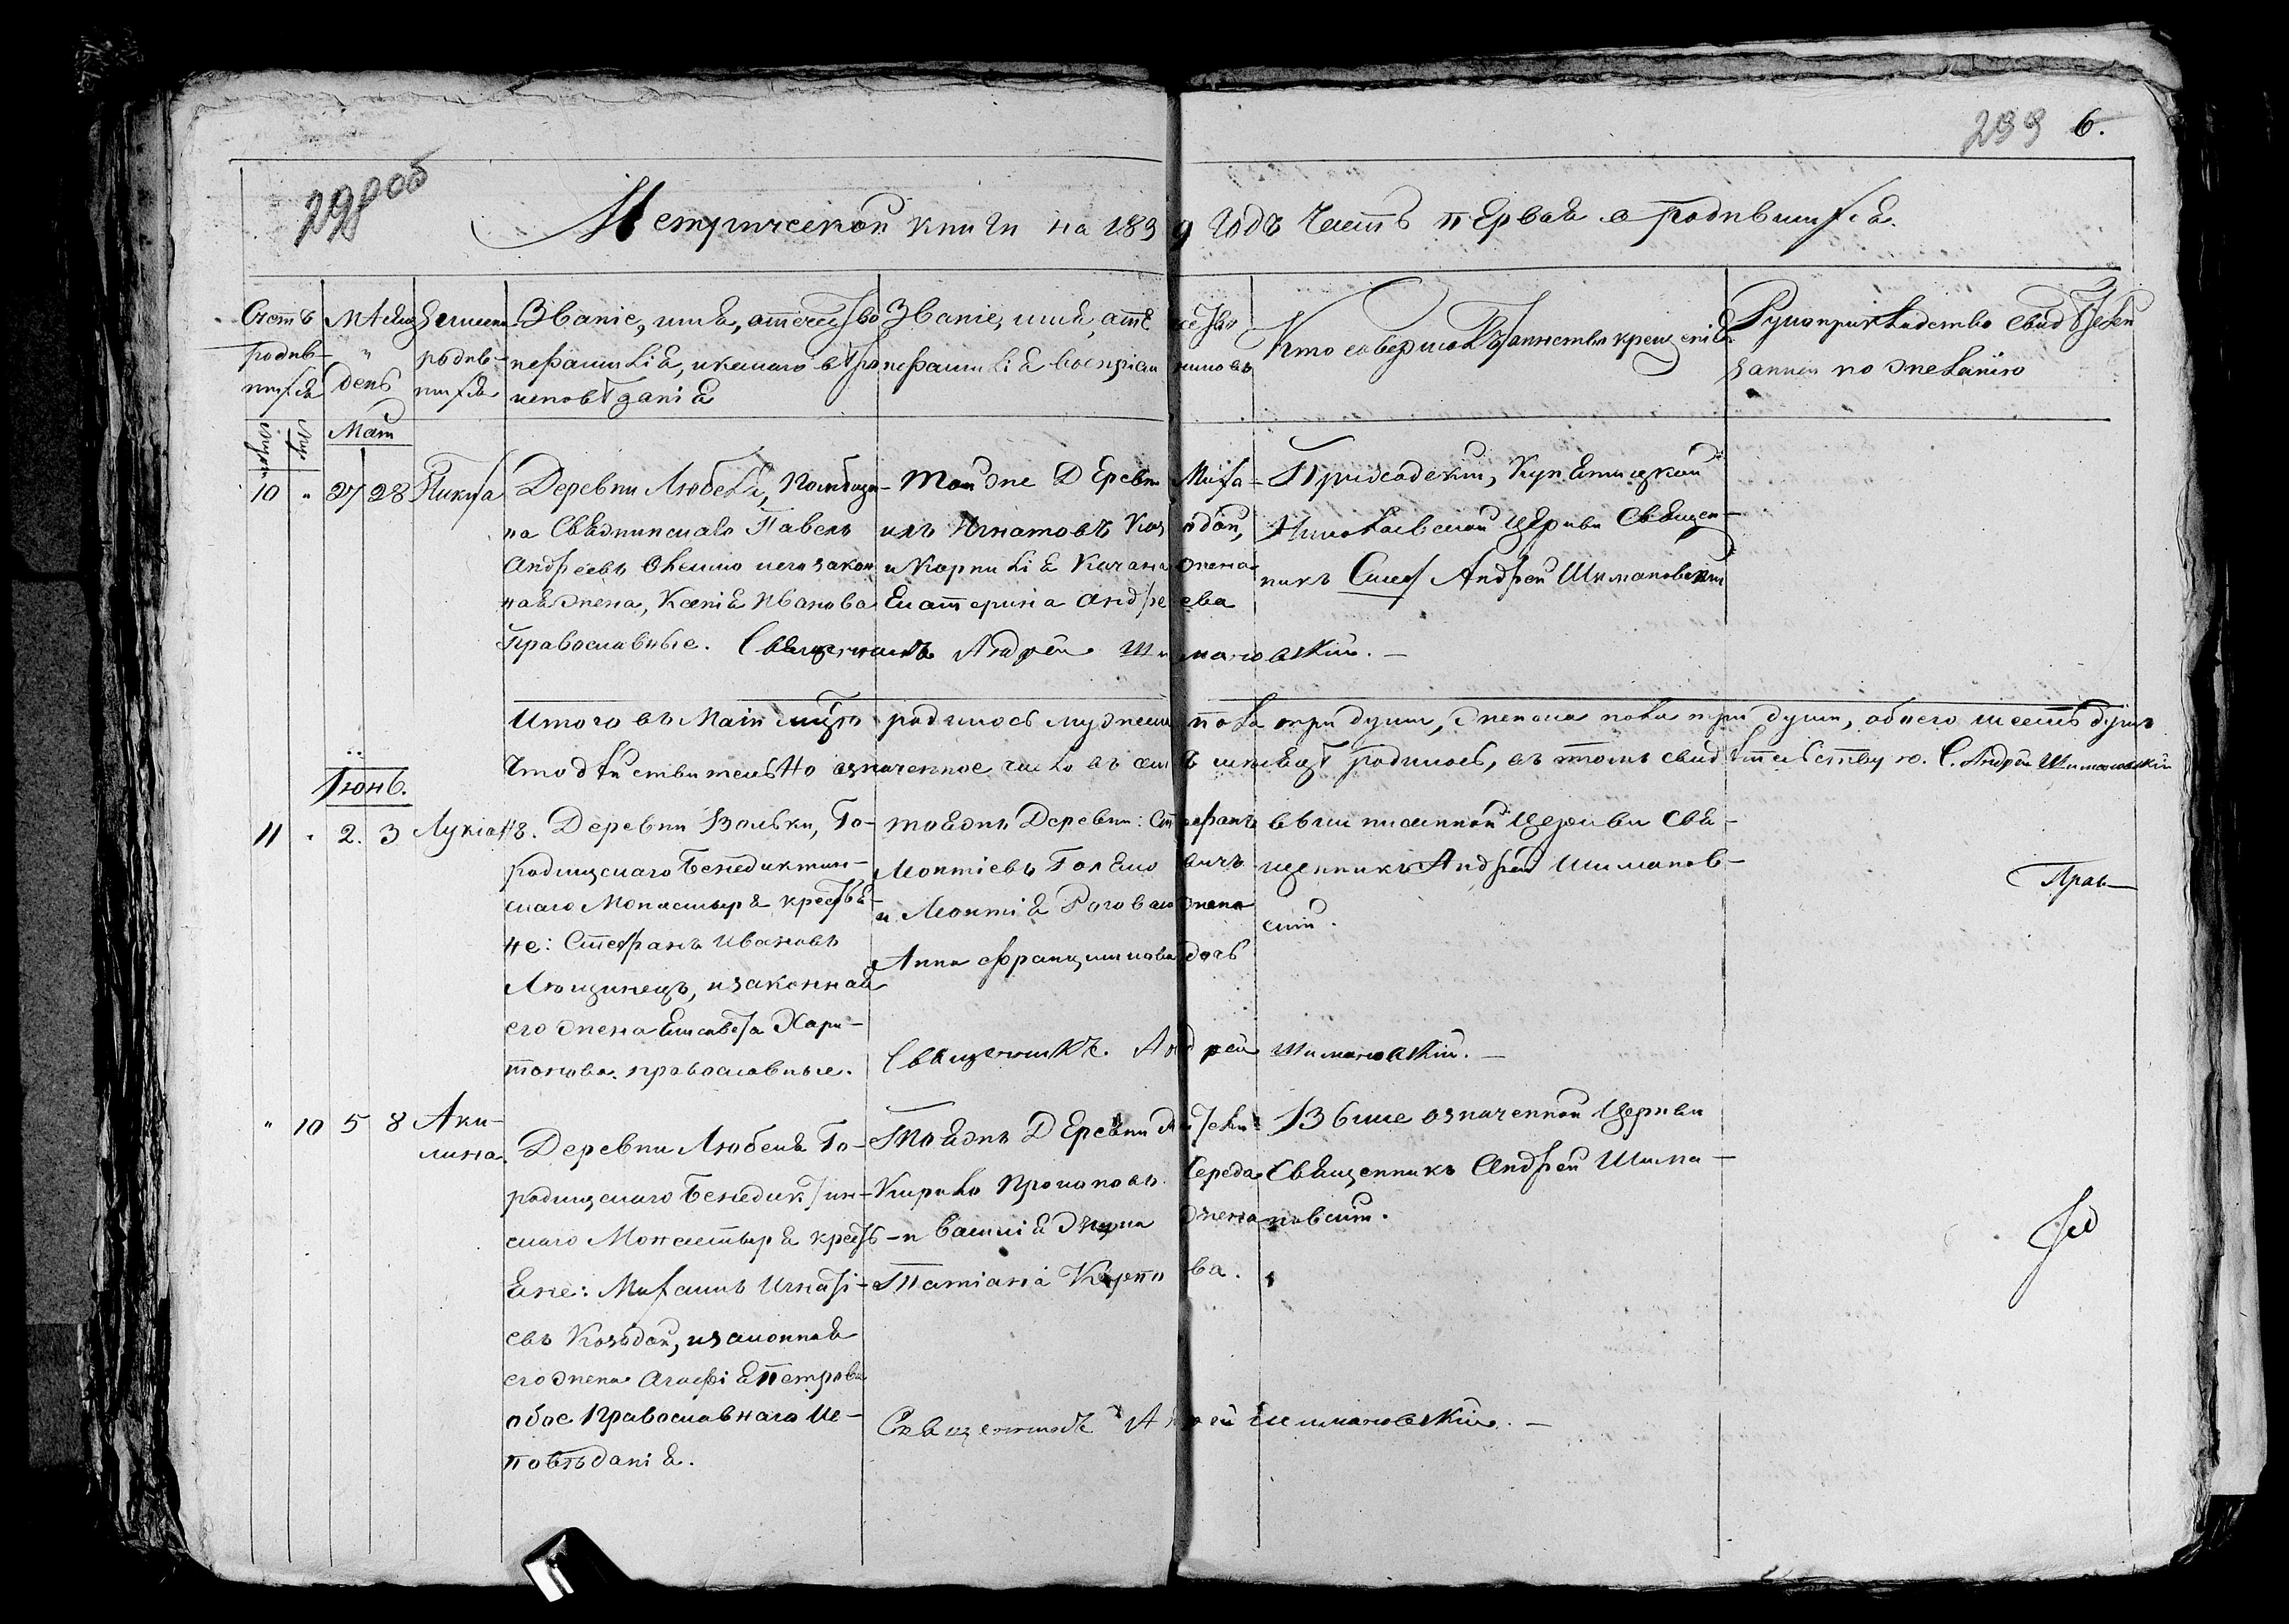 298об
299 6.
Метрической книги на 1839 Годъ Часть первая о родившихся.
Счетъ родив- шихся
Мѣсяцъ " День
Имена родив- шихся
Званіе, имя, отечество
и фамилія, и какого вѣро
исповѣданія
Званіе, имя, отечество
и фамилія воспріемниковъ
Кто совершалъ Таинство крещенія
Рукоприкладство свидѣтелей
записи по желанію
Маіи
10 " 27 28 Никита
Деревни Любеля,
на Павелъ
Андреевъ и его закон
ная жена, Ксенія Иванова
православные.
Той же Деревни Миха-
илъ Игнатовъ Козьдой,
и Корнилія Качана жена
Екатерина Андреева
Приходскій,
Николаевской Церкви Священ-
никъ Андрей Шимановскій
Священникъ Андрей Шимановскій. —
Итого въ Маіи мцѣ родилось мужеска пола три души, женска пола три души, обоего шесть душъ
Что дѣйствительно означенное число въ семъ мѣсяцѣ родилось, въ томъ свидѣтельствую. С. Андрей Шимановскій
Іюнь.
11 " 2. 3 Лукіанъ
Деревни Вольки, Го-
родищскаго Бенедиктин-
скаго Монастыря крестья-
не: Стефанъ Ивановъ
Лющинецъ, и законная
его жена Елисавета Хари-
тонова. православные.
Тояжъ Деревни: Стефанъ
Леонтіевъ
и Леонтія жена
Анна Францишкова дочь
Вышписанной Церкви Свя-
щенникъ Андрей Шиманов-
скій.
Прав—
Священникъ. Андрей Шимановскій. —
" 10 5 8 Аки-
лина.
Деревни Любеля Го-
родищскаго Бенедиктин-
скаго Монастыря кресть-
яне: Михаилъ Игнаті-
евъ Козьдой, и законная
его жена Агафія Петрова
обое Православнаго Ис-
повѣданія.
Тояжъ Деревни
Кирило Прокоповъ Середа
и Василія жена
Татіана Карпова.
Выше означенной Церкви
Священникъ Андрей Шима-
новскій.
Священникъ Андрей Шимановскій. —